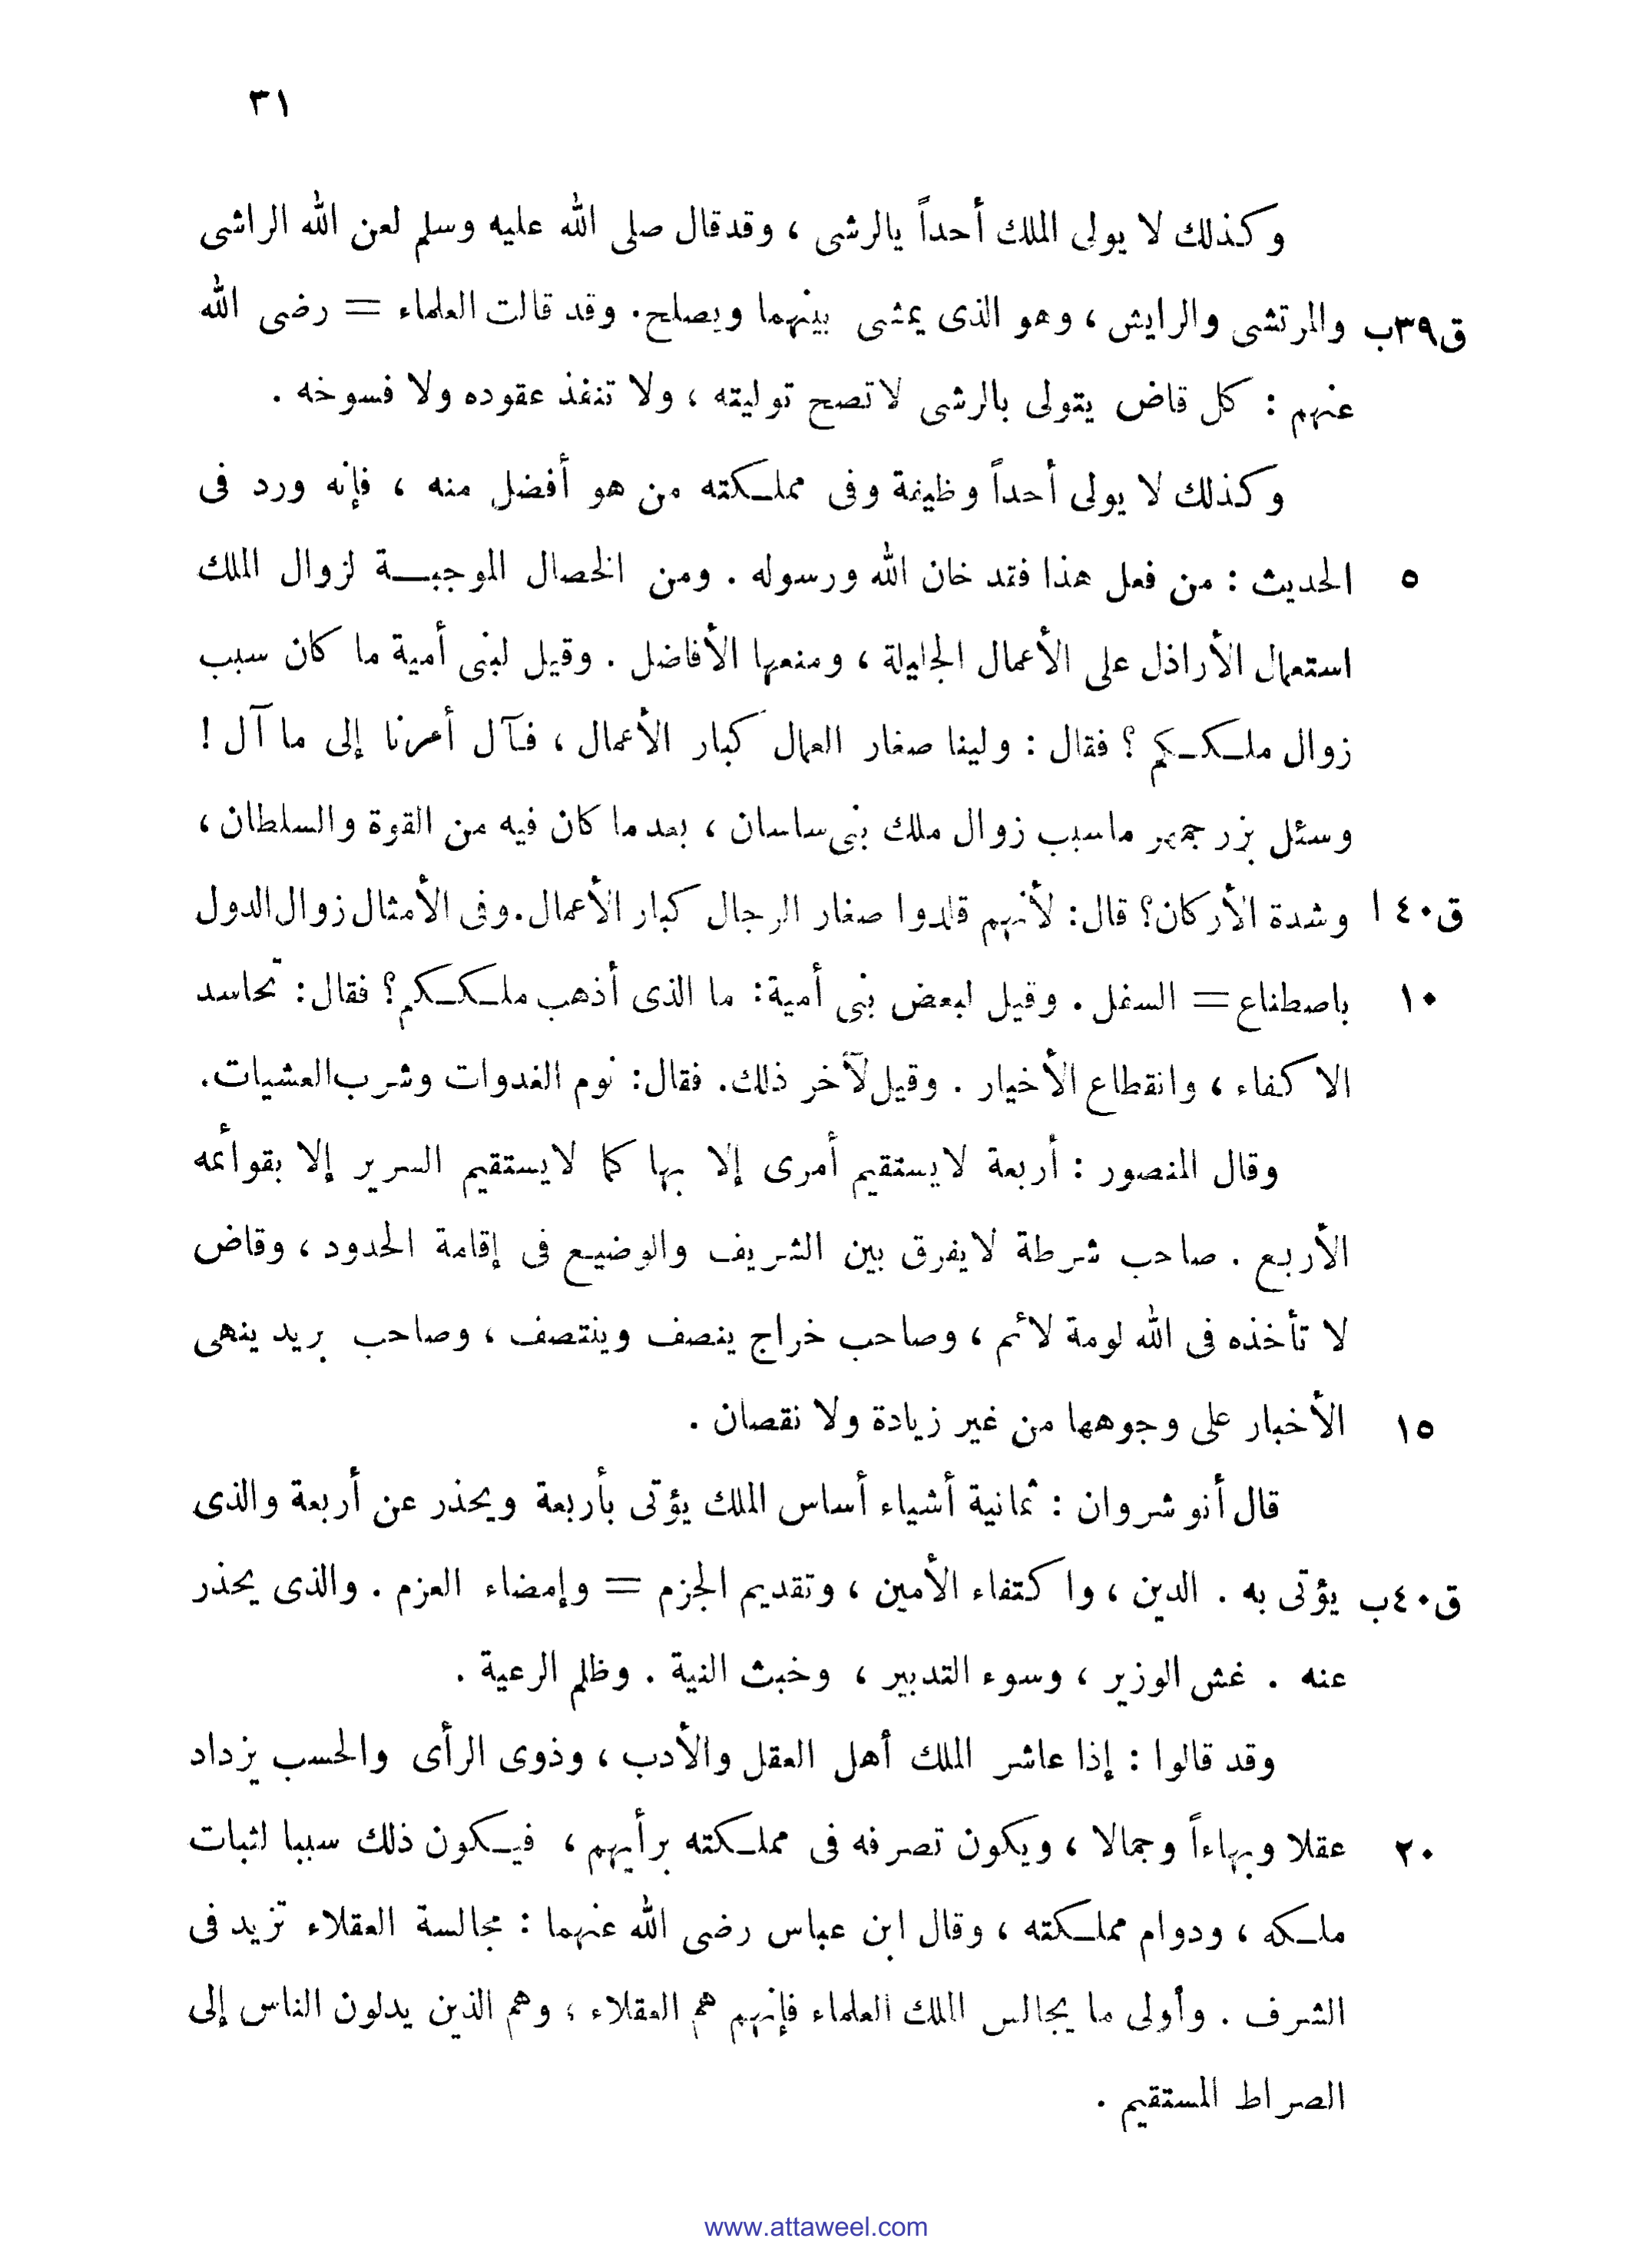 ٣١
وكذلك لا يولى الملك أحداً يالرشى ، وقدقال صلى الله عليه وسلم لعن الله الراشى
ق٣٩ب والمرتشى والرايش ، وهو الذى يمشى بينهما ويصلح. وقد قالت العلماء = رضى الله
عنهم : كل قاض يتولى بالرشى لاتصح توليته ، ولا تنفذ عقوده ولا فسوخه .
وكذلك لا يولى أحداً وظيفة وفى مملـكته من هو أفضل منه ، فإنه ورد فى
٥ الحديث : من فعل هذا فقد خان الله ورسوله . ومن الخصال الموجبـــة لزوال الملك
استعمال الأراذل على الأعمال الجليلة ، ومنعها الأفاضل . وقيل لبنى أمية ما كان سبب
زوال ملـكـكم ؟ فقال : ولينا صغار العمال كبار الأعمال ، فـآل أمرنا إلى ما آل !
وسئل بزرجمهر ماسبب زوال ملك بنى ساسان ، بعدما كان فيه من القوة والسلطان ،
ق٤٠ ا وشدة الأركان؟ قال: لأنهم قلدوا صغار الرجال كبار الأعمال.وفى الأمثال زوال الدول
١٠ باصطناع = السفل . وقيل لبعض بنى أمية: ما الذى أذهب ملـكـكم؟ فقال: تحاسد
الاكفاء ، وانقطاع الأخيار . وقيل لآخر ذلك. فقال: نوم الغدوات وشرب العشيات.
وقال المنصور : أربعة لايستقيم أمرى إلا بها كما لايستقيم السرير إلا بقوائمه
الأربع . صاحب شرطة لايفرق بين الشريف والوضيـع فى إقامة الحدود ، وقاض
لا تأخذه فى الله لومة لائم ، وصاحب خراج ينصف وينتصف ، وصاحب بريد ينهى
١٥ الأخبار على وجوهها من غير زيادة ولا نقصان .
قال أنو شروان : ثمانية أشياء أساس الملك يؤتى بأربعة ويحذر عن أربعة والذى
ق٤٠ب يؤتى به . الدين ، واكتفاء الأمين ، وتقديم الجزم = وإمضاء العزم . والذى يحذر
عنه . غش الوزير ، وسوء التدبير ، وخبث النية . وظلم الرعية .
وقد قالوا : إذا عاشر الملك أهل العقل والأدب ، وذوى الرأى والحسب يزداد
٢٠ عقلا وبهاءاً وجمالا ، ويكون تصرفه فى مملـكته برأيهم ، فيـكون ذلك سببا لثبات
ملـكه ، ودوام مملـكته ، وقال ابن عباس رضى الله عنهما : مجالسة العقلاء تزيد فى
الشرف . وأولى ما يجالس الملك العلماء فإنهم هم العقلاء ، وهم الذين يدلون الناس إلى
الصراط المستقيم .
www.attaweel.com